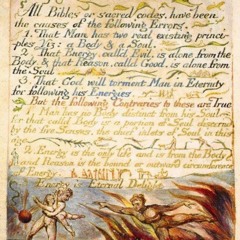 All Bibles or sacred codes. have been
the causes of the following Errors.
1. That Man has two real existing princi-
ples Viz: a Body & a Soul.
2. That Energy. calld Evil. is alone from the
Body. & that Reason. calld Good. is alone from
the Soul.
3. That God will torment Man in Eternity
for following his Energies.
But the following Contraries to these are True
1. Man has no Body distinct from his Soul
for that calld Body is a portion of Soul discernd
by the five Senses. the chief inlets of Soul in this
age
2. Energy is the only life and is from the Body
and Reason is the bound or outward circumference
of Energy.
Energy is Eternal Delight